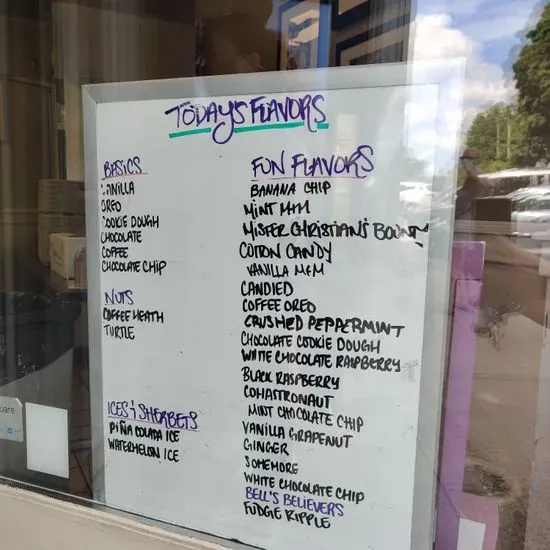 TODAYS FLAVORS
BASICS
VANILLA
OREO
COOKIE DOUGH
CHOCOLATE
COFFEE
CHOCOLATE CHIP
NUTS
COFFEE HEATH
TURTLE
ICES & SHERBETS
PIÑA COLADA ICE
WATERMELON ICE
FUN FLAVORS
BANANA CHIP
MINT M&M
MISTER CHRISTIAN'S BOUNTY
COTTON CANDY
VANILLA M&M
CANDIED
COFFEE OREO
CRUSHED PEPPERMINT
CHOCOLATE COOKIE DOUGH
WHITE CHOCOLATE RASPBERRY
BLACK RASPBERRY
COHASTRONAUT
MINT CHOCOLATE CHIP
VANILLA GRAPENUT
GINGER
SOMEMORE
WHITE CHOCOLATE CHIP
BELL'S BELIEVERS
FUDGE RIPPLE
uare